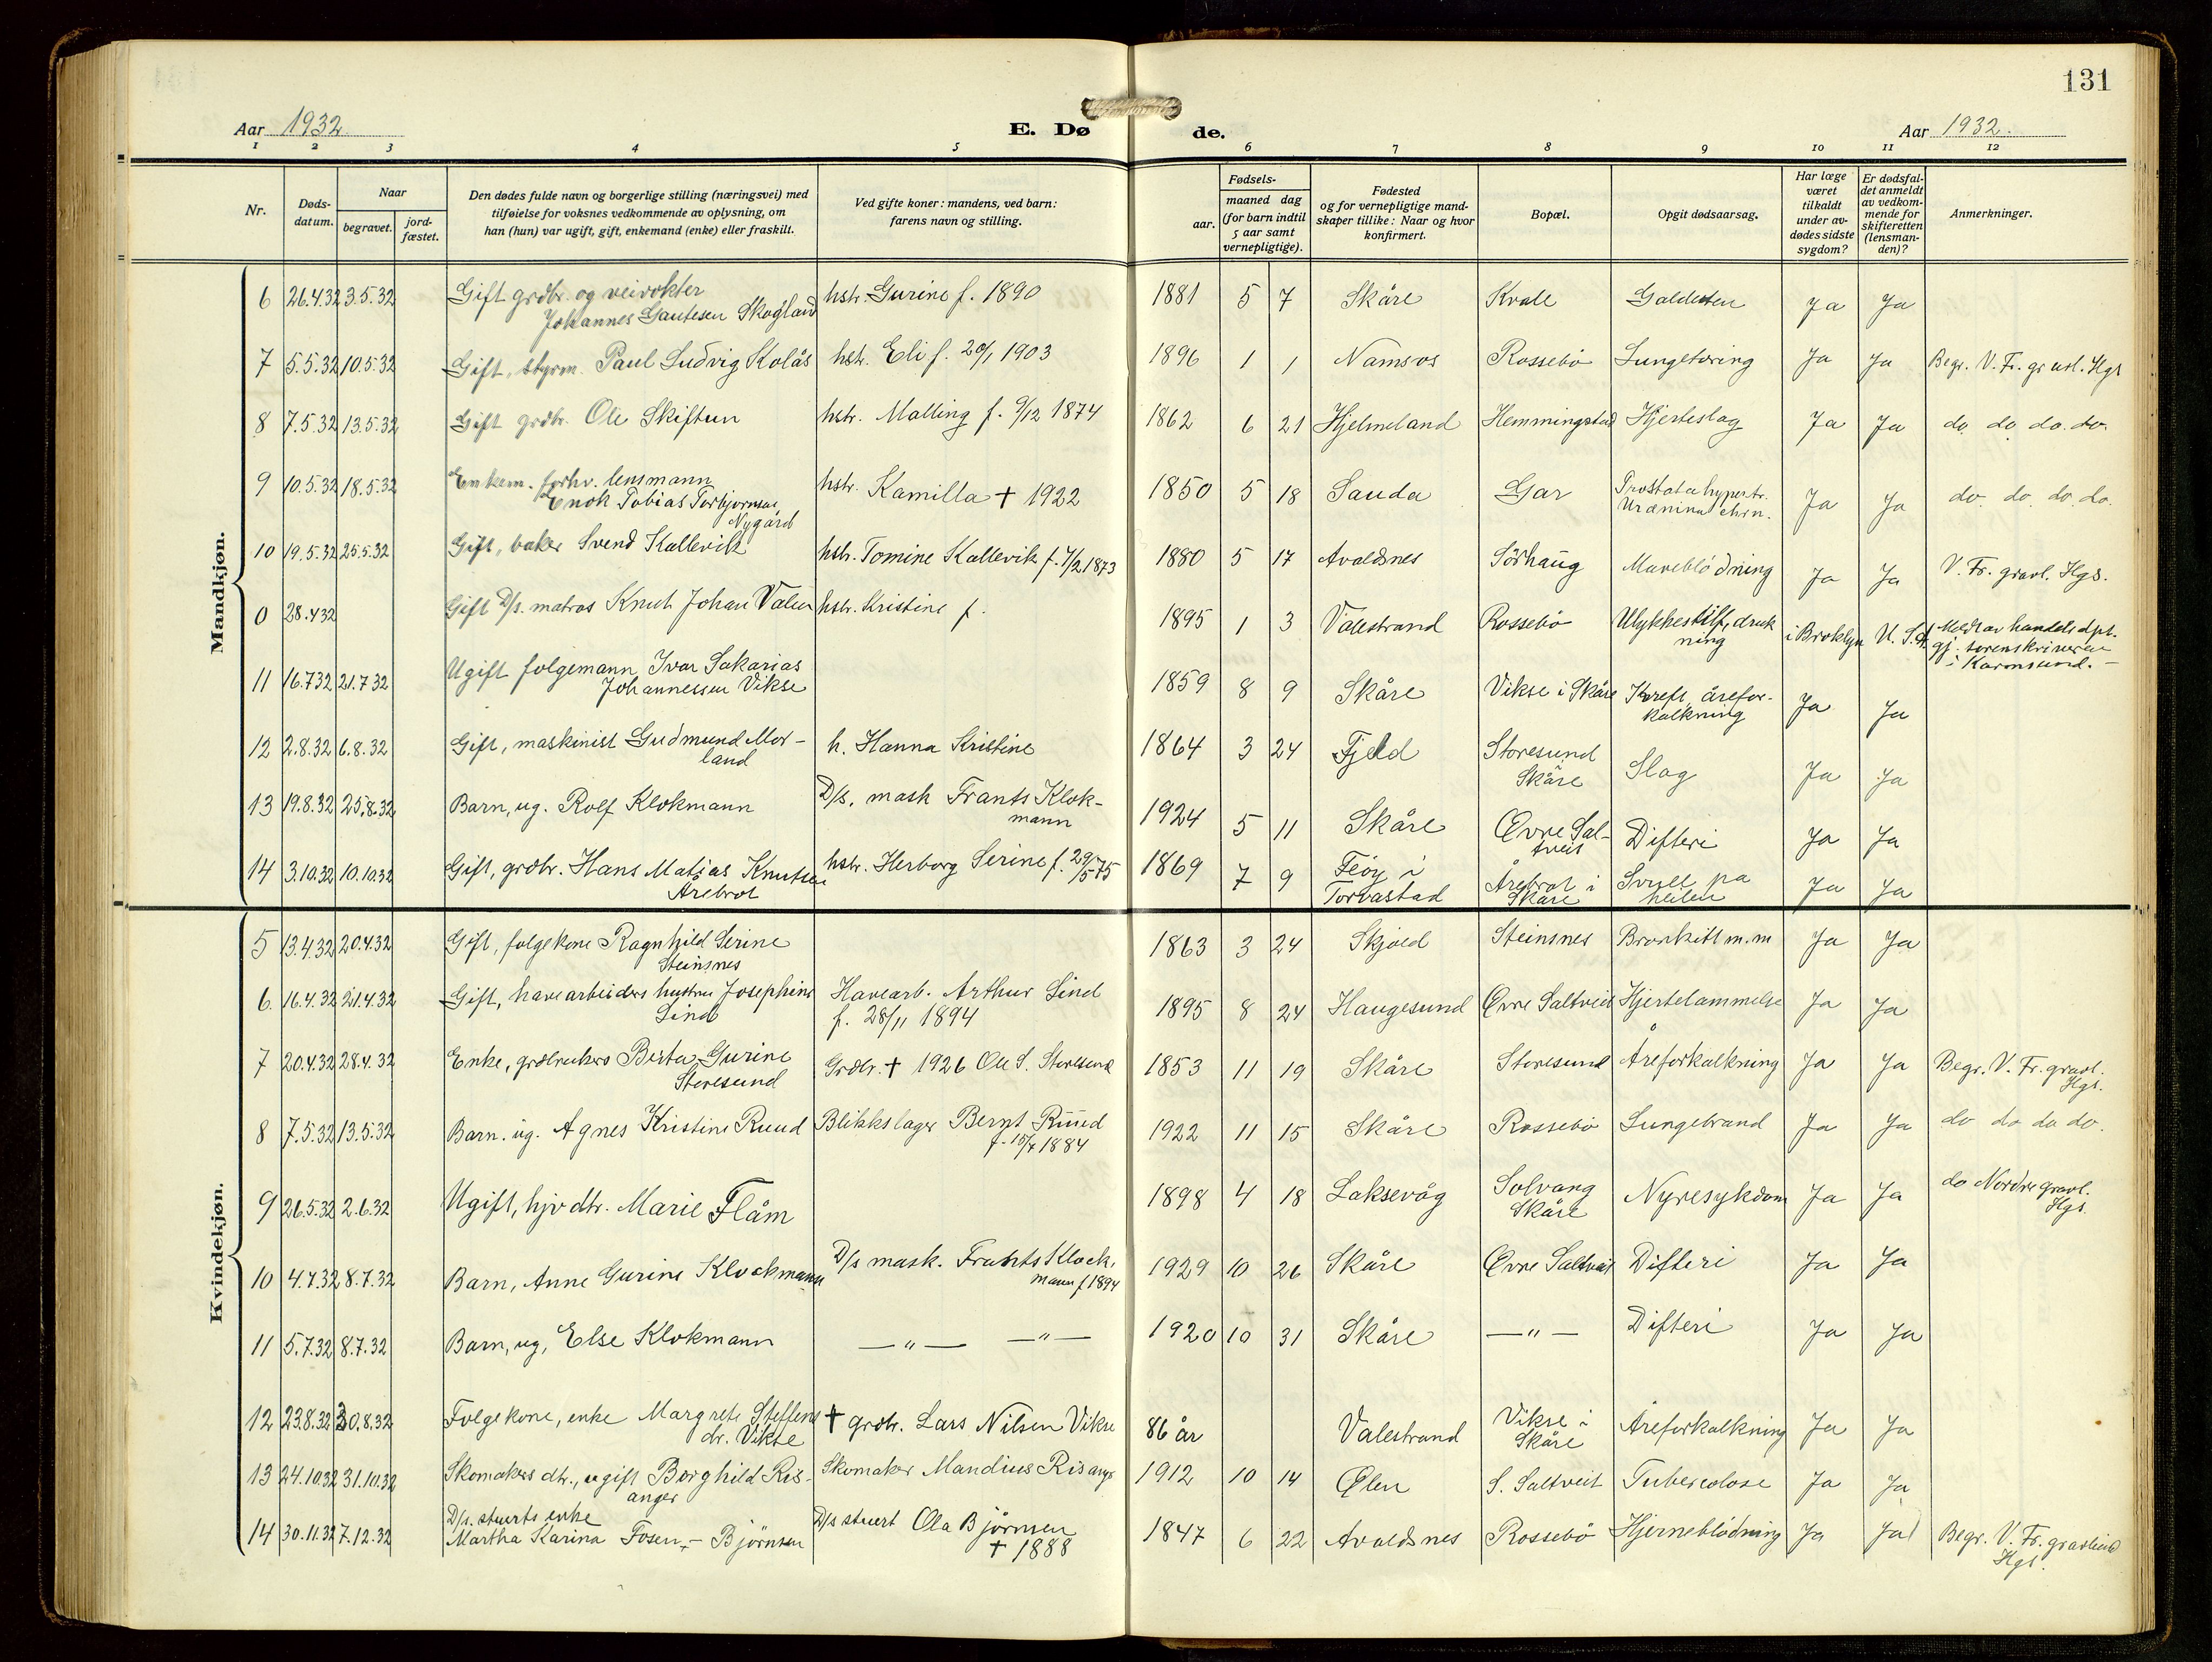 131
Aar 1932
E. Dø de.
Aar 1932.
1 2 3 4 5 6 7 8 9 10 11 12
Nr.
Døds-
datum.
Naar
begravet.
jord-
fæstet.
Den dødes fulde navn og borgerlige stilling (næringsvei) med
tilføielse for voksnes vedkommende av oplysning, om
han (hun) var ugift, gift, enkemand (enke) eller fraskilt.
Ved gifte koner: mandens, ved barn:
farens navn og stilling.
Fødsels-
aar.
maaned dag
(for barn indtil
5 aar samt
vernepligtige).
Fødested
og for vernepligtige mand-
skaper tillike: Naar og hvor
konfirmert.
Bopæl.
Opgit dødsaarsag.
Har læge
været
tilkaldt
under av-
dødes sidste
sygdom?
Er dødsfal-
det anmeldt
av vedkom-
mende for
skifteretten
(lensman-
den)?
Anmerkninger.
Mandkjøn.
6 26.4.32 3.5.32 Gift grdbr. og veivokter
Johannes Gautesen Skogland hstr. Gurine f. 1890 1881 5 7 Skåre Kvale Galdesten Ja Ja
7 5.5.32 10.5.32 Gift, styrm. Paul Ludvig Kolås hstr. Eli f. 20/1 1903 1896 1 1 Namsos Rossebö Lungetæring Ja Ja Begr. V. Fr. gravl. Hgs
8 7.5.32 13.5.32 Gift grdbr. Ole Skiftun hstr. Malling f. 9/12 1874 1862 6 21 Hjelmeland Hemmingstad Hjerteslag Ja Ja do. do do. do.
9 10.5.32 18.5.32 Enkem. forhv. lensmann
Enok Tobias Torbjornsen
Nygård hstr. Kamilla † 1922 1850 5 18 Sauda Gar Prostatahypertr.
chrn. Ja Ja do. do. do. do.
10 19.5.32 25.5.32 Gift, baker Svend Kallevik hstr. Tomine Kallevik f. 7/2 1873 1880 5 17 Avaldsnes Sörhaug Maveblödning Ja Ja V. Fr. gravl. Hgs.
0 28.4.32 Gift D/s. matros Knut Johan Valen hstr. Kristine f. 1895 1 3 Valestrand Rossebö Ulykkestilf, druk
ning i Broklyn U. S. A Meldt av handelsdpt.
gj. sorenskriveren
i Karmsund. —
11 16.7.32 21.7.32 Ugift folgemann Ivar Sakarias
Johannessen Vikse 1859 8 9 Skåre Vikse i Skåre Kreft, årefor-
kalkning Ja Ja
12 2.8.32 6.8.32 Gift, maskinist Gudmund Mor-
land h. Hanna Kristine 1864 3 24 Fjeld Storesund
Skåre Slag Ja Ja
13 19.8.32 25.8.32 Barn, ug. Rolf Klokmann D/s. mask Frants Klok-
mann 1924 5 11 Skåre Øvre Sal-
tveit Difteri Ja Ja
14 3.10.32 10.10.32 Gift, grdbr. Hans Matias Knutsen
Årebrot hstr. Herborg Serine f. 29/5 75 1869 7 9 Feöy i
Torvastad Årebrot i
Skåre Svull på
Ja Ja
Kvindekjøn.
5 13.4.32 20.4.32 Gift, folgekone Ragnhild Serine
Steinsnes 1863 3 24 Skjold Steinsnes Bronkitt m.m Ja Ja
6. 16.4.32 21.4.32 Gift, havearbeiders hustru Josephine
Lind Havearb. Arthur Lind
f. 28/11 1894 1895 8 24 Haugesund Øvre Saltveit Hjertelammelse Ja Ja
7 20.4.32 28.4.32 Enke, grdbrukers Berta Gurine
Storesund Grdbr. † 1926 Ole S. Storesund 1853 11 19 Skåre Storesund Åreforkalkning Ja Ja Begr. V. Fr. gravl.
Hgs.
8 7.5.32 13.5.32 Barn. ug. Agnes Kristine Ruud Blikkslager Bernt Ruud
f. 15/7 1884 1922 11 15 Skåre Rossebö Lungebrand Ja Ja do do do do.
9 26.5.32 2.6.32 Ugift, hjv dtr. Marie Flåm 1898 4 18 Laksevåg Solvang
Skåre Nyresykdom Ja Ja do Nordre gravl.
Hgs.
10 4.7.32 8.7.32 Barn, Anne Gurine Klockmann D/s mask. Frants Klock,
mann f 1894 1929 10 26 Skåre Øvre Saltveit Difteri Ja Ja
11 5.7.32 8.7.32 Barn, ug, Else Klokmann — " — — " — 1920 10 31 Skåre — " — Difteri Ja Ja
12 23.8.32 30.8.32 Folgekone, enke Margrete Steffens
dr. Vikse † grdbr. Lars Nilsen Vikse 86 år Valestrand Vikse i
Skåre Åreforkalkning Ja Ja
13 24.10.32 31.10.32 Skomakers dtr., ugift Borghild Ris-
anger Skomaker Mandius Risanger 1912 10 14 Ølen S. Saltveit Tuberculose Ja Ja
14 30.11.32 7.12.32 D/s. stuerts enke
Martha Karina Fosen, - Björnsen D/s stuert Ola Björnsen
† 1888 1847 6 22 Avaldsnes Rossebö Hjerneblödning Ja Ja Begr. V. Fr. gravlund
Hgs.